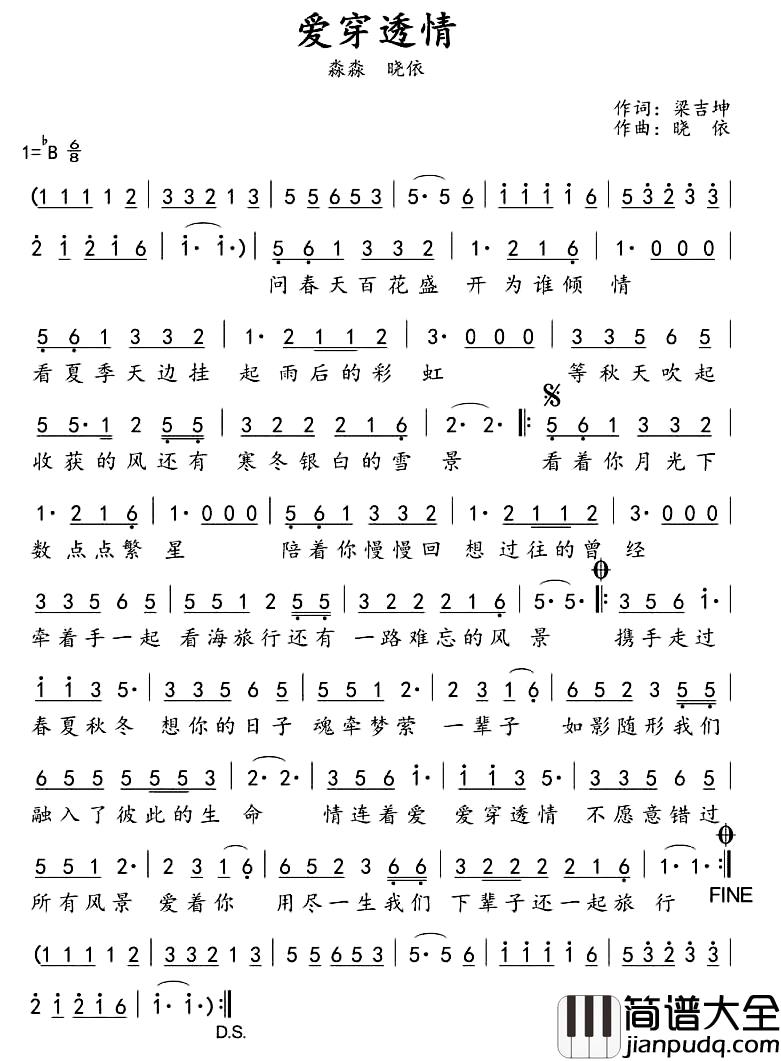 爱穿透情
淼淼 晓依
作词：梁吉坤
作曲：晓 依
1=♭B 6/8
(1 1 1 1 2 | 3 3 2 1 3 | 5 5 6 5 3 | 5· 5 6 | 1 1 1 1 6 | 5 3 2 3 3 |
2 1 2 1 6 | 1· 1·) | 5 6 1 3 3 2 | 1· 2 1 6 | 1· 0 0 0 |
问春天百花盛 开为谁倾 情
5 6 1 3 3 2 | 1· 2 1 1 2 | 3· 0 0 0 | 3 3 5 6 5 |
看夏季天边挂 起雨后的彩 虹 等秋天吹起
5 5· 1 2 5 5 | 3 2 2 2 1 6 | 2· 2· |: 5 6 1 3 3 2 |
收获的风还有 寒冬银白的雪 景 看着你月光下
1· 2 1 6 | 1· 0 0 0 | 5 6 1 3 3 2 | 1· 2 1 1 2 | 3· 0 0 0 |
数点点繁 星 陪着你慢慢回 想过往的曾 经
3 3 5 6 5 | 5 5 1 2 5 5 | 3 2 2 2 1 6 | 5· 5· |: 3 5 6 1· |
牵着手一起 看海旅行还有 一路难忘的风 景 携手走过
1 1 3 5· | 3 3 5 6 5 | 5 5 1 2· | 2 3 1 6 | 6 5 2 3 5 5 |
春夏秋冬 想你的日子 魂牵梦萦 一辈子 如影随形我们
6 5 5 5 5 3 | 2· 2· | 3 5 6 1· | 1 1 3 5· | 3 3 5 6 5 |
融入了彼此的生 命 情连着爱 爱穿透情 不愿意错过
5 5 1 2· | 2 3 1 6 | 6 5 2 3 6 6 | 3 2 2 2 2 1 6 | 1· 1· :|
所有风景 爱着你 用尽一生我们 下辈子还一起旅 行 FINE
(1 1 1 1 2 | 3 3 2 1 3 | 5 5 6 5 3 | 5· 5 6 | 1 1 1 1 6 | 5 3 2 3 3 |
2 1 2 1 6 | 1· 1·) :|
D.S.
简谱大全
jianpudq.com